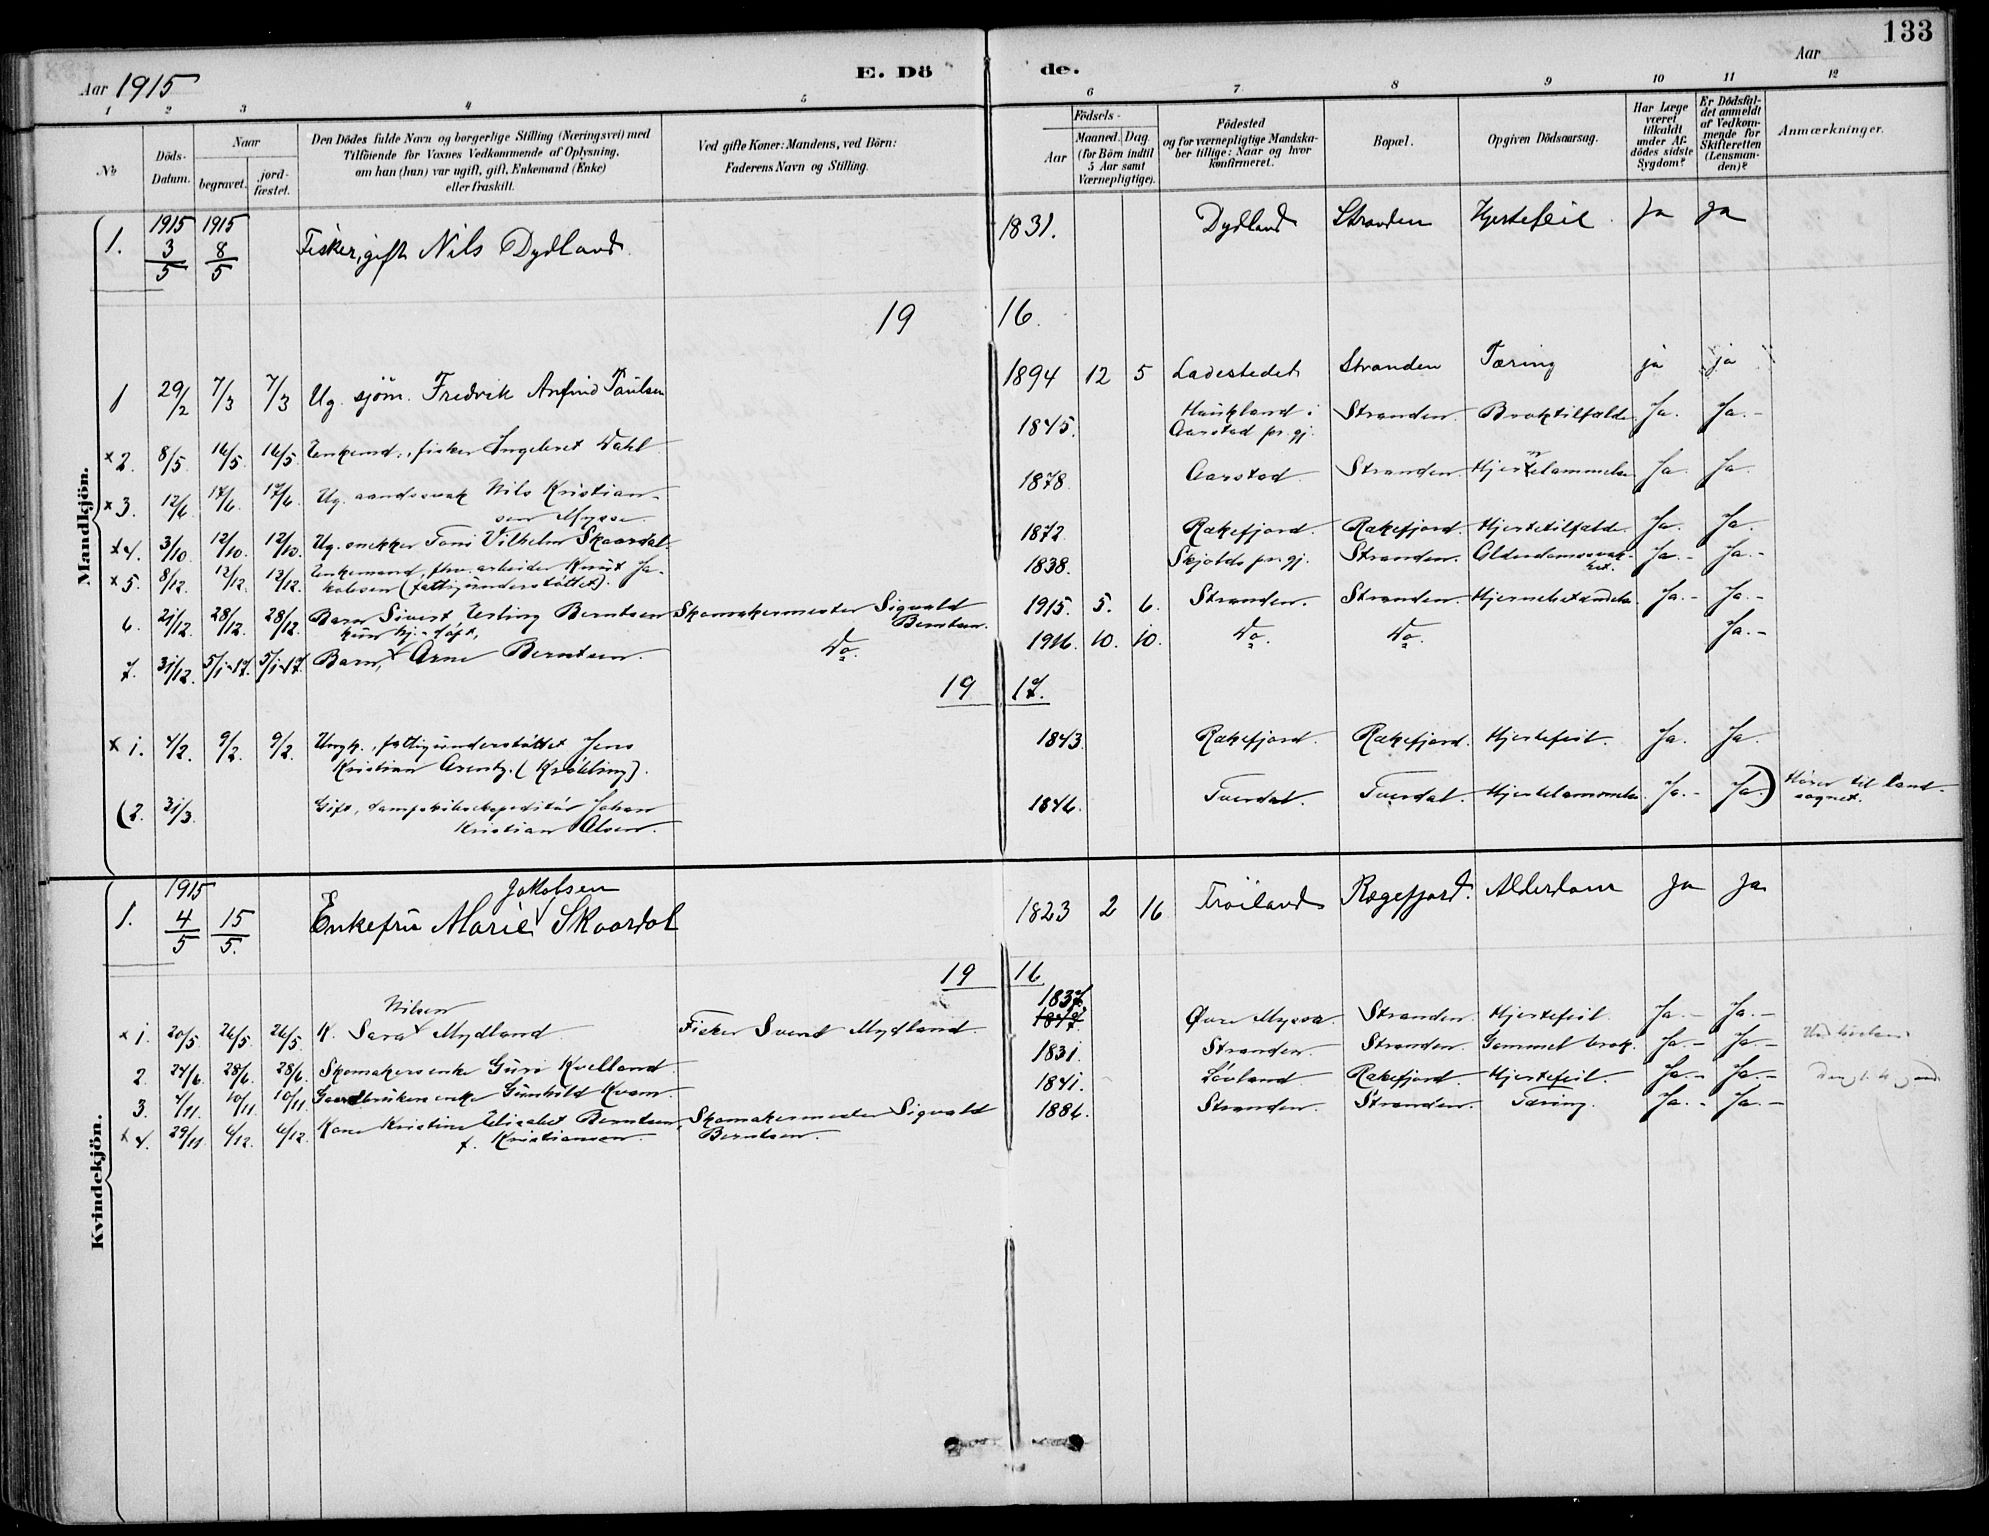 133
Aar 1915
E. Dö de.
Aar
1 2 3 4 5 6 7 8 9 10 11 12
No
Döds-Datum.
Naar
begravet.
jord-fæstet.
Den Dödes fulde Navn og borgerlige Stilling (Næringsvei) med
Tilföiende for Voxnes Vedkommende af Oplysning,
om han (hun) var ugift, gift, Enkemand (Enke)
eller fraskilt.
Ved gifte Koner: Mandens, ved Börn:
Faderens Navn og Stilling.
Födsels-
Aar
Maaned. Dag
(for Börn indtil
5 Aar samt
Værnepligtige).
Födested
og for værnepligtige Mandska-
ber tillige: Naar og hvor
konfirmeret.
Bopæl.
Opgiven Dödsaarsag.
Har Læge
været
tilkaldt
under Af-
dödes sidste
Sygdom?
Er Dödsfal-
det anmeldt
af Vedkom-
mende for
Skifteretten
(Lensman-
den)?
Anmærkninger.
Mandkjön.
1915 1915
1. 3/5 8/5 Fisker, gift Nils Dydland. 1831. Dydland Stranden Hjertefeil. Ja Ja
19 16.
1 29/2 7/3 7/3 Ug. sjöm. Fredrik Anfind Paulsen 1894 12 5 Ladestedet Stranden Tæring ja ja
x 2. 8/5 16/5 16/5 Enkemd., fisker Ingebret Dahl 1845. Haukland i
Aarstad pr.gj. Stranden Braktilfælde Ja. Ja.-
x 3. 12/6 17/6 17/6 Ug. aandssvak Nils Kristian-
sen Mysse 1878. Aarstad Stranden Hjertelammelse Ja. Ja.
x 4. 3/10 12/10. 12/10. Ug. snekker Toni Vilhelm Skaardal. 1872. Rækefjord. Rækefjord. Hjertetilfælde. Ja. Ja.
x 5. 8/12. 12/12. 12/12. Enkemand, fhv. arbeider Knut Ja-
kobsen (fattigunderstöttet). 1838. Skjolds pr.gj. Stranden. Alderdomssvak-
het. Ja.- Ja.-
6. 21/12. 28/12. 28/12. Barn Sivert Erling Berntsen Skomakermester Sigvald
Berntsen. 1915. 5. 6. Stranden. Stranden. Ja.- Ja.-
kun hj.-döpt,
7. 31/12. 5/1-17. 5/1-17. Barn, Arne Berntsen. Do. 1916. 10. 10. Do. Do. Ja.-
19 17.
x 1. 4/2. 9/2. 9/2. Ungk., fattigunderstöttet Jens
Kristian Arentz. 1843. Rækefjord. Rækefjord. Hjertefeil. Ja. Ja.
(2. 31/3. Gift, dampskibsekspeditör Johan
Kristian Olsen. 1846. Tuerdal. Tuerdal. Hjertelammelse Ja.- Ja.) Hörer til land-
sognet.
Kvindekjön.
1915
Jakobsen
1. 4/5 15/5. Enkefru Marie Skaardal 1823 2 16 Tröiland Rægefjord. Alderdom Ja Ja
19 16
Nilsen 1837.
x 1. 20/5 26/5. 26/5. K. Sara Mydland. Fisker Svend Mydland. Övre Myssa. Stranden. Hjertefeil. Ja.- Ja.-
2. 24/6. 28/6. 28/6. Skomakersenke Guri Kvelland. 1831. Stranden. Stranden. Gammel brok. Ja.- Ja.-
3. 4/11. 10/11. 10/11. Gaardbrukersenke Gunhild Kvam. 1841. Lövland Rækefjord. Hjertefeil. Ja.- Ja.-
x 4. 29/11. 6/12. 6/12. Kone Kristine Elisabet Berntsen, Skomakermester Sigvald
f. Kristiansen. Berntsen. 1886. Stranden. Stranden. Tæring. Ja.- Ja.-